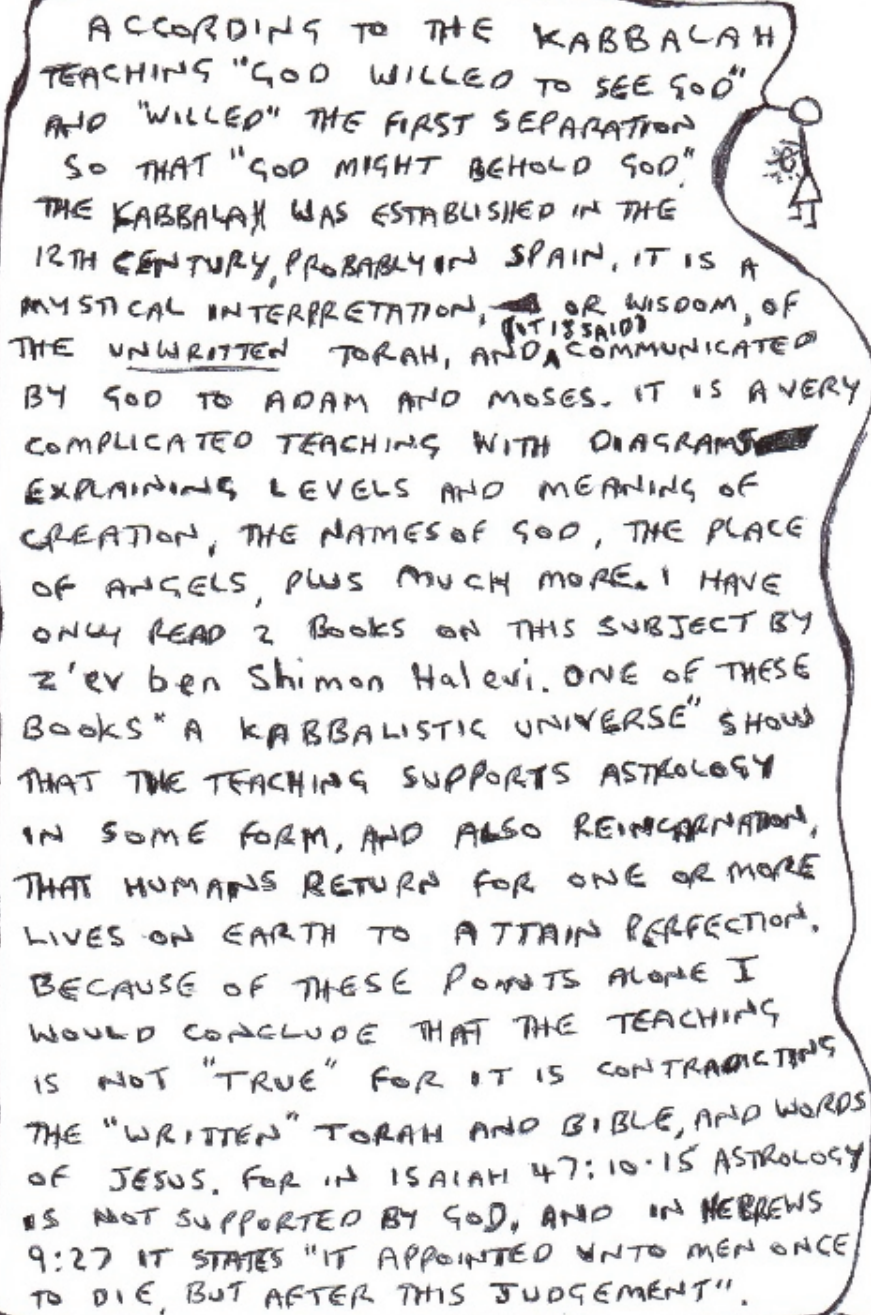 ACCORDING TO THE KABBALAH
TEACHING "GOD WILLED TO SEE GOD"
AND "WILLED" THE FIRST SEPARATION
SO THAT "GOD MIGHT BEHOLD GOD".
THE KABBALAH WAS ESTABLISHED IN THE
12TH CENTURY, PROBABLY IN SPAIN. IT IS A
MYSTICAL INTERPRETATION, OR WISDOM, OF
(IT IS SAID)
THE UNWRITTEN TORAH, AND COMMUNICATED
BY GOD TO ADAM AND MOSES. IT IS A VERY
COMPLICATED TEACHING WITH DIAGRAMS
EXPLAINING LEVELS AND MEANING OF
CREATION, THE NAMES OF GOD, THE PLACE
OF ANGELS, PLUS MUCH MORE. I HAVE
ONLY READ 2 BOOKS ON THIS SUBJECT BY
z'ev ben Shimon Halevi. ONE OF THESE
BOOKS "A KABBALISTIC UNIVERSE" SHOW
THAT THE TEACHING SUPPORTS ASTROLOGY
IN SOME FORM, AND ALSO REINCARNATION,
THAT HUMANS RETURN FOR ONE OR MORE
LIVES ON EARTH TO ATTAIN PERFECTION.
BECAUSE OF THESE POINTS ALONE I
WOULD CONCLUDE THAT THE TEACHING
IS NOT "TRUE" FOR IT IS CONTRADICTING
THE "WRITTEN" TORAH AND BIBLE, AND WORDS
OF JESUS. FOR IN ISAIAH 47:10-15 ASTROLOGY
IS NOT SUPPORTED BY GOD, AND IN HEBREWS
9:27 IT STATES "IT APPOINTED UNTO MEN ONCE
TO DIE, BUT AFTER THIS JUDGEMENT".